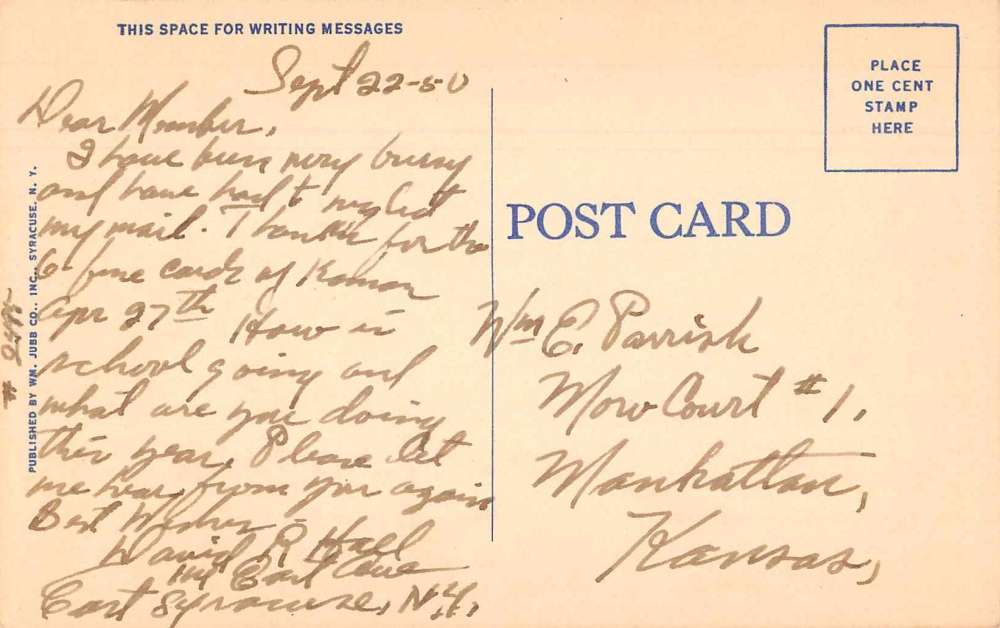 THIS SPACE FOR WRITING MESSAGES
Sept 22-50
Dear Member,
I have been very bussy
and have had to neglect
my mail. Thanks for the
6 fine cards of Kansas
Apr 27th How is
school going and
what are you doing
this year, Please let
me hear from you again
Best Wishes -
David R Hall
East Ave
East Syracuse, N.Y.
PUBLISHED BY WM. JUBB CO., INC., SYRACUSE, N. Y.
PLACE
ONE CENT
STAMP
HERE
POST CARD
Wm E. Parrish
Court #1,
Manhattan,
Kansas,